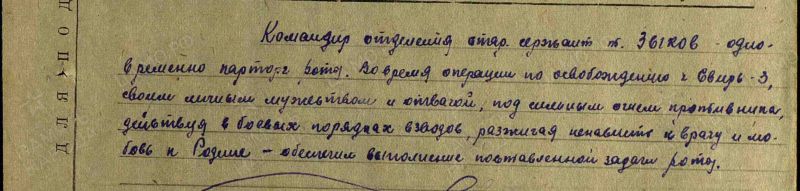 Командир отделения стар. сержант т. Зыков - одно-
временно парторг роты. Во время операции по освобождению г. Свирь-3,
своим личным мужеством и отвагой, под сильным огнем противника,
действуя в боевых порядках взводов, разжигая ненависть к врагу и лю-
бовь к Родине - обеспечил выполнение поставленной задачи роты.
ДЛЯ ПОД